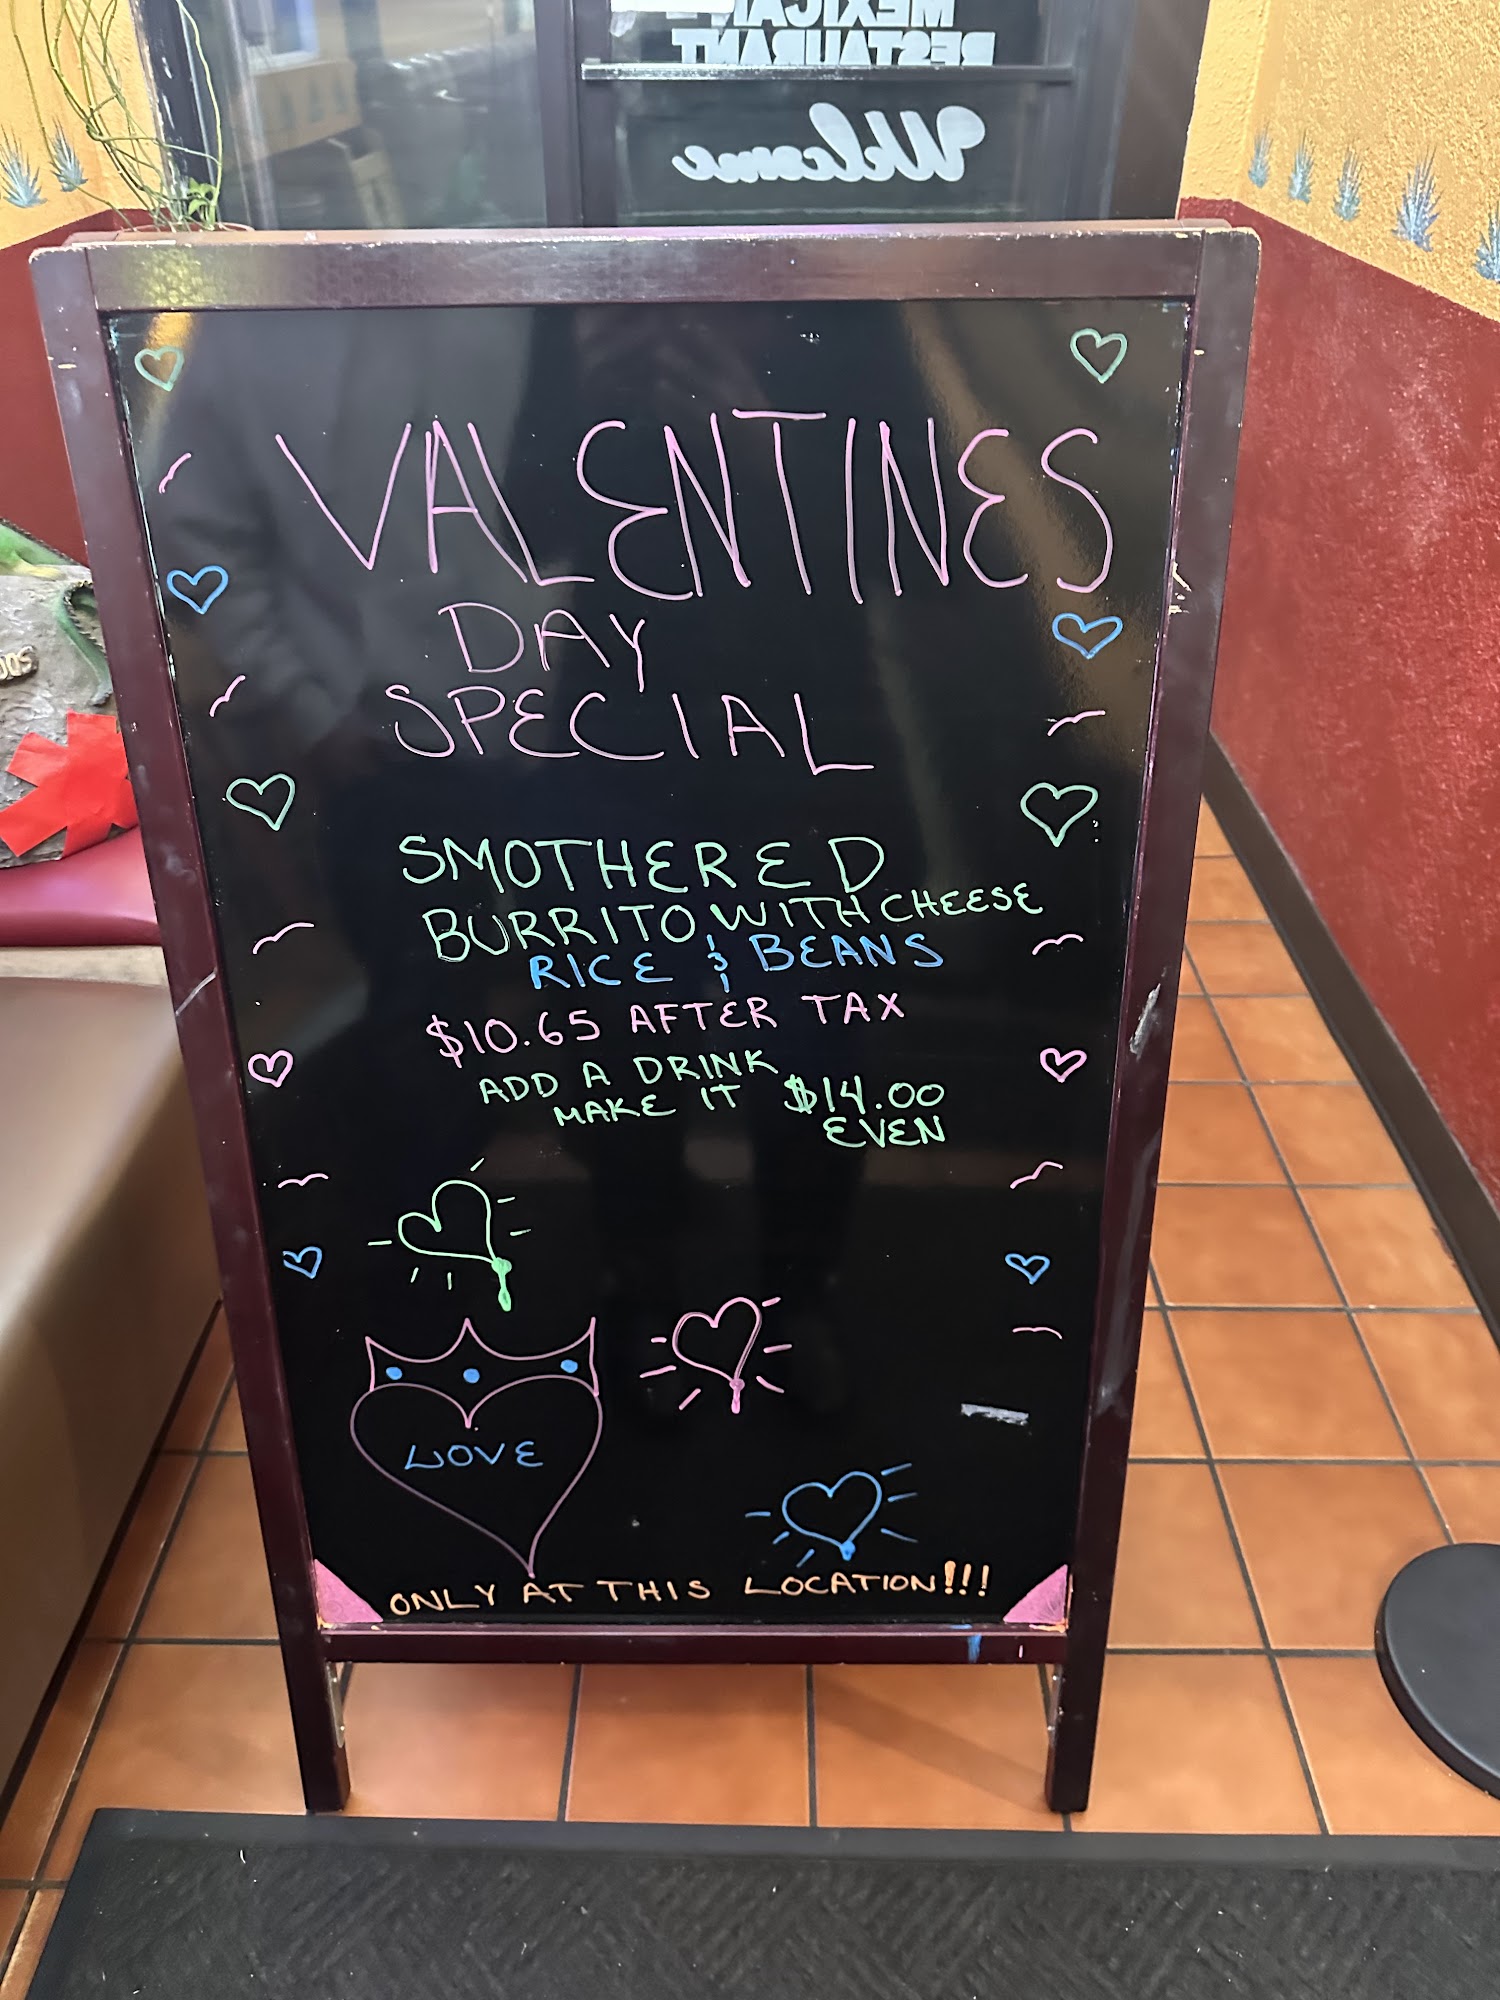 MEXICAN
RESTAURANT
Welcome
VALENTINES
DAY
SPECIAL
SMOTHERED
BURRITO WITH CHEESE
RICE & BEANS
$10.65 AFTER TAX
ADD A DRINK
MAKE IT $14.00
EVEN
LOVE
ONLY AT THIS LOCATION!!!